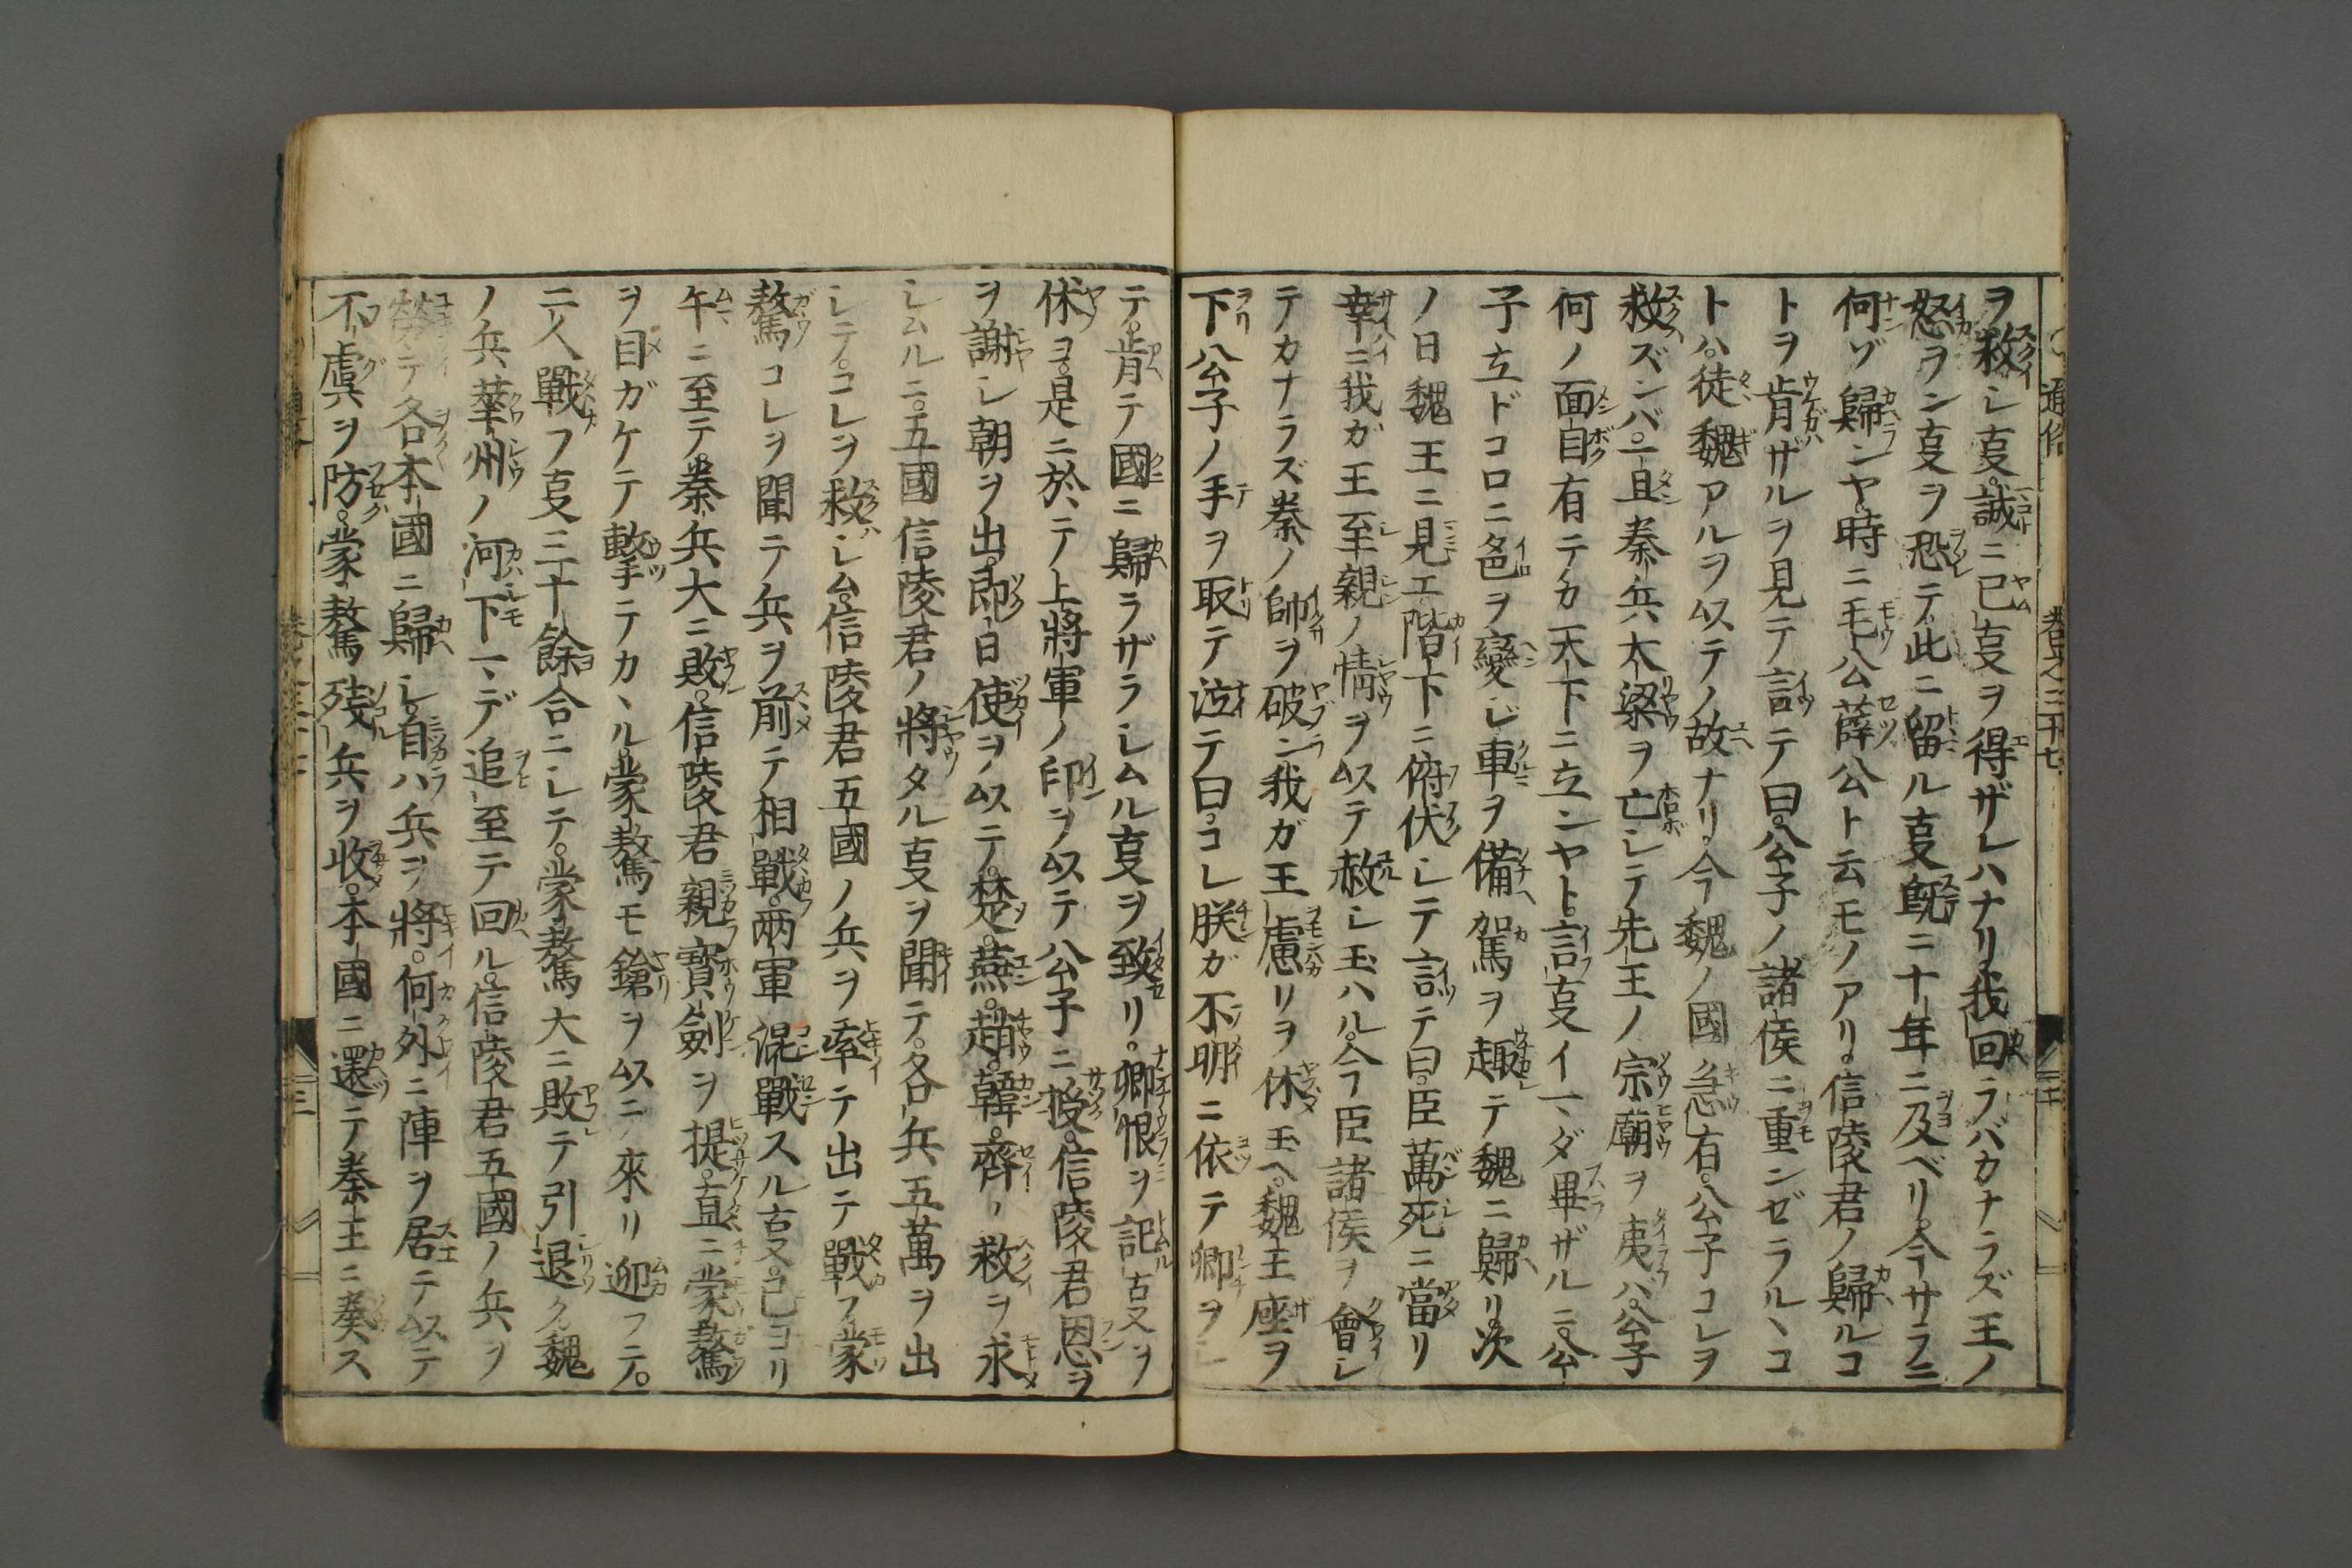 通俗 巻之三十七
ヲ救シ叓。誠ニ已叓ヲ得ザレハナリ。我回ラバカナラズ王ノ
怒ヲン叓ヲ恐テ。此ニ留ル叓既ニ十年ニ及ベリ。今サラニ
何ゾ歸ンヤ。時ニ毛公薛公ト云モノアリ。信陵君ノ歸ルコ
トヲ肯ザルヲ見テ言テ曰。公子ノ諸侯ニ重ンゼラルヽコ
トハ。徒魏アルヲ以テノ故ナリ。今魏ノ國急有。公子コレヲ
救ズンバ。一旦秦兵大梁ヲ亡シテ先王ノ宗廟ヲ夷バ。公子
何ノ面目有テカ天下ニ立ンヤト。言叓イマダ畢ザルニ。公
子立ドコロニ色ヲ變ジ。車ヲ備駕ヲ趣テ魏ニ歸リ。次
ノ日魏王ニ見エ。階下ニ俯伏シテ言テ曰。臣萬死ニ當リ
幸ニ我ガ王至親ノ情ヲ以テ赦シ玉ハル。今臣諸侯ヲ會シ
テカナラズ秦ノ帥ヲ破ン。我ガ王慮リヲ休玉ヘ。魏王座ヲ
下公子ノ手ヲ取テ泣テ曰。コレ朕ガ不明ニ依テ卿ヲ
テ。肯テ國ニ歸ラザラシムル叓ヲ致リ。卿恨ヲ記叓ヲ
休コ。是ニ於テ上將軍ノ印ヲ以テ公子ニ授。信陵君恩ヲ
ヲ謝シ朝ヲ出。即日使ヲ以テ。楚。燕。趙。韓。齊ニ救ヲ求
シムルニ。五國信陵君ノ將タル叓ヲ聞テ。各兵五萬ヲ出
シテ。コレヲ救シム。信陵君五國ノ兵ヲ率テ出テ戰フ。蒙
驁コレヲ聞テ兵ヲ前テ相戰。兩軍混戰スル叓。已ヨリ
午ニ至テ。秦兵大ニ敗。信陵君親寶劍ヲ提。直ニ蒙驁
ヲ目ガケテ撃テカヽル。蒙驁モ鎗ヲ以ニ來リ迎フニ。
二人戰フ叓三十餘合ニシテ。蒙驁大ニ敗テ引退ク。魏
ノ兵華州ノ河下マデ追至テ回ル。信陵君五國ノ兵ヲ
勞テ各本國ニ歸シ。自ハ兵ヲ將。何外ニ陣ヲ居テ以テ
不虞ヲ防。蒙驁殘兵ヲ收。本國ニ還テ秦王ニ奏ス